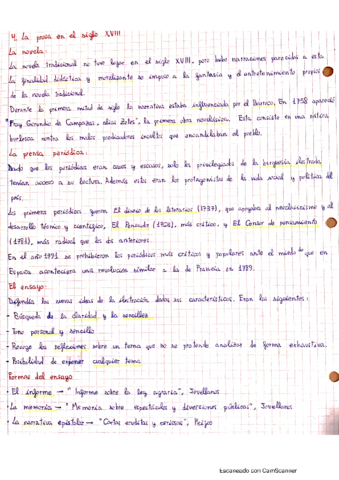 4. La prosa en el siglo XVIII
La novela:
La novela tradicional no tuvo lugar en el siglo XVIII, pero hubo narraciones parecidas a esta.
La finalidad didáctica y moralizante se impuso a la fantasía y el entretenimiento propios
de la novela tradicional.
Durante la primera mitad de siglo la narrativa estaba influenciada por el Barroco. En 1758 apareció
"Fray Gerundio de Campazas, alias Zotes", la primera obra novelística. Esta consiste en una sátira
burlesca contra los malos predicadores incultos que encandilaban al pueblo.
La prensa periódica:
Dado que los periódicos eran caros y escasos, solo los privilegiados de la burguesía ilustrada
tenían acceso a su lectura. Además estos eran los protagonistas de la vida social y política del
país.
Los primeros periódicos fueron El diario de los literatos (1737), que apoyaba al neoclasicismo y al
desarrollo técnico y científico, El Pensador (1762), más crítico, y El Censor de pensamiento
(1781), más radical que los dos anteriores.
En el año 1791 se prohibieron los periódicos más críticos y populares ante el miedo de que en
España aconteciera una revolución similar a la de Francia en 1789.
El ensayo:
Defendía las nuevas ideas de la Ilustración dadas sus características. Eran las siguientes:
- Búsqueda de la claridad y la sencillez
- Tono personal y sencillo
- Recoge las reflexiones sobre un tema que no se pretende analizar de forma exhaustiva.
- Posibilidad de exponer cualquier tema
Formas del ensayo
- El informe → "Informe sobre la ley agraria", Jovellanos
- La memoria → "Memoria sobre espectáculos y diversiones públicas", Jovellanos
- La narrativa epistolar → "Cartas eruditas y curiosas", Feijoo
Escaneado con CamScanner